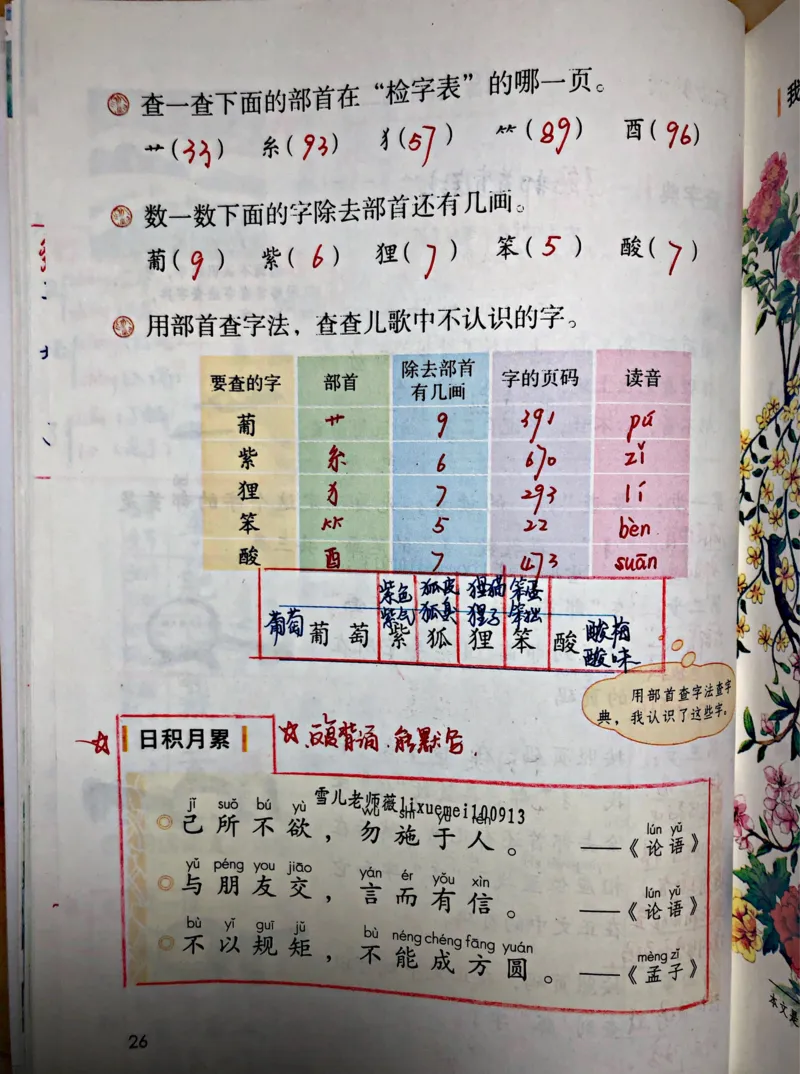 查一查下面的部首在“检字表”的哪一页。
艹(33) 糹(93) 犭(57) ⺮(89) 酉(96)
数一数下面的字除去部首还有几画。
葡(9) 紫(6) 狸(7) 笨(5) 酸(7)
用部首查字法，查查儿歌中不认识的字。
要查的字 部首 除去部首有几画 字的页码 读音
葡 艹 9 391 pú
紫 糸 6 670 zǐ
狸 犭 7 293 lí
笨 ⺮ 5 22 bèn
酸 酉 7 473 suān
紫色 狐皮 狸猫 笨蛋
紫气 狐臭 狸子 笨拙
葡萄 葡 萄 紫 狐 狸 笨 酸 酸梅
酸味
用部首查字法查字
典，我认识了这些字。
日积月累 反复背诵，能默写。
雪儿老师薇lixuemei100913
jǐ suǒ bú yù wù shī yú rén lún yǔ
己所不欲，勿施于人。 ——《论语》
yǔ péng you jiāo yán ér yǒu xìn lún yǔ
与朋友交，言而有信。 ——《论语》
bù yǐ guī jǔ bù néng chéng fāng yuán mèng zǐ
不以规矩，不能成方圆。 ——《孟子》
26
我
本文是